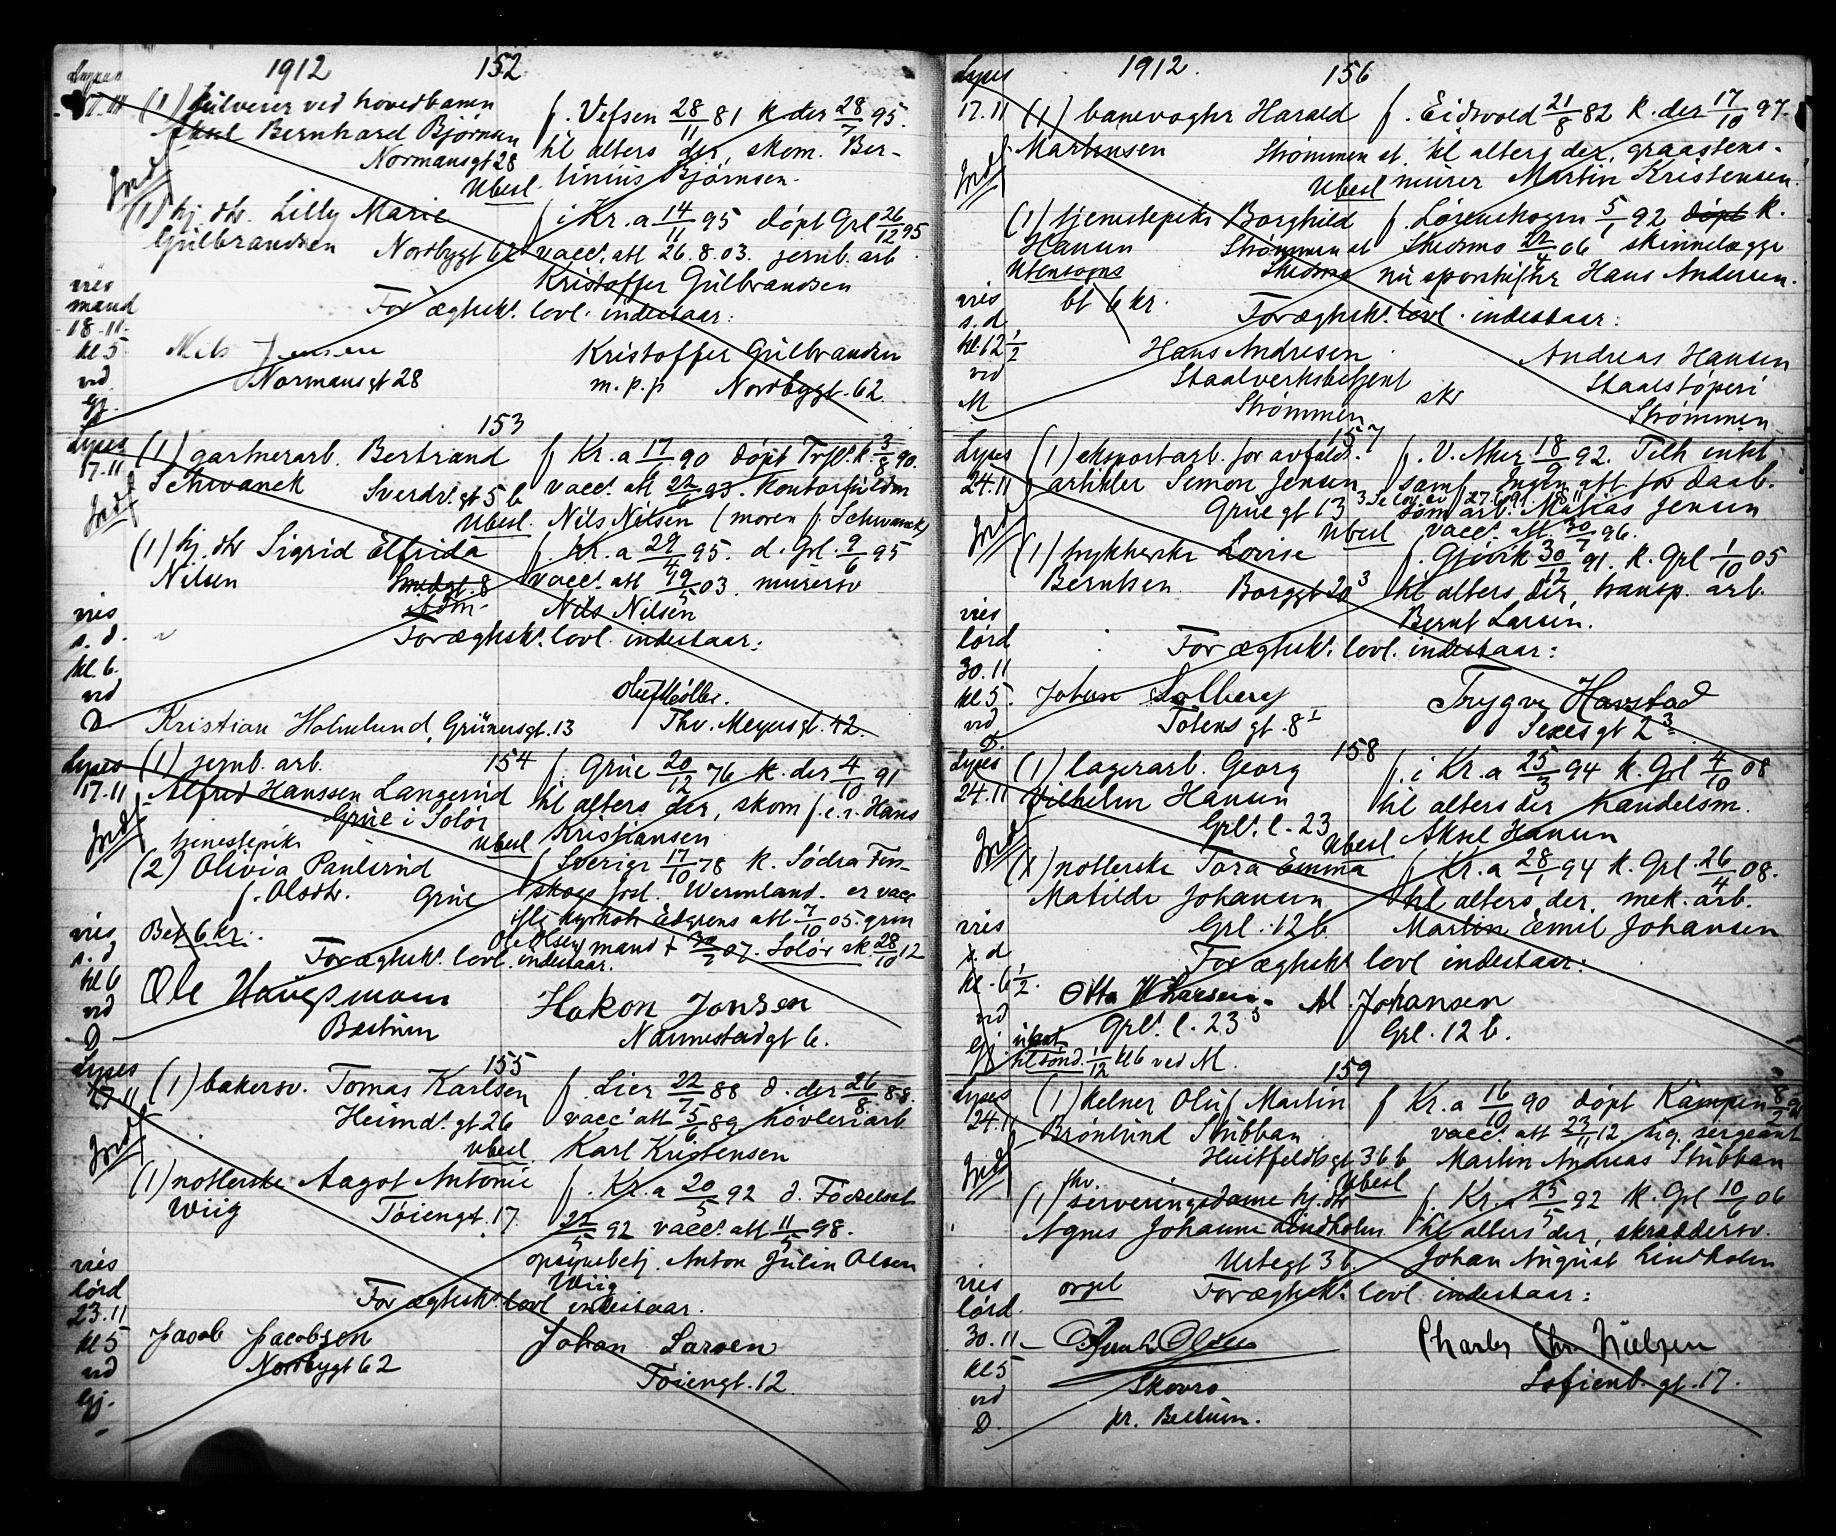 1912 152
17.11 (1) fulverer ved hovedbanen
Aksel Bernhard Bjørnsen
Normansgt 28
Ubesl.
f. Vefsen 28/11 81 k. der 28/7 95.
til alters der, skom. Ber-
linius Bjørnsen.
(1) hj. dtr. Lilly Marie
Gulbrandsen Nordbygt 62
f. i Kr.a 14/11 95 døpt Grl 26/12 95
vacc. att 26.8.03. jernb. arb
Kristoffer Gulbrandsen
vies
mand
18-11-
kl 5
vid
Gj.
For ægtesk. lovl. indestaar:
Nils Jensen
Normansgt 28
Kristoffer Gulbrandsen
m.p.p Nordbygt. 62
153
Lyses
17.11 (1) gartnerarb. Bertrand
Schwanck Sverdr. gt 5 b
Ubesl.
f Kr.a 17/6 90 døpt Trefl. k. 3/8 90.
vacc. att 22/6 93. Kontorfuldm
Nils Nilsen (moren f. Schwanck)
(1) hj. dtr Sigrid Elfrida
Nilsen Smedgt. 8
f. Kr.a 29/4 95. d. Grl. 9/6 95
vacc. att 19/5 03. murersv
Nils Nilsen
vies
s. d.
kl 6.
vid
D
For ægtesk. lovl. indestaar:
Kristian Holmlund, Grünersgt. 13
Thv. Meyersgt. 42.
154
Lyses
17.11 (1) jernb. arb.
Alfred Hanssen Langerud
Grue i Solør
Ubesl
f. Grue 20/12 76 k. der 4/10 91
til alters der, skom f.e.r. Hans
Kristiansen
tjenestepike
(2) Olivia Paulsrud
f. Olsdtr. Grue
f Sverige 17/10 78 k. Södra Fin-
skoga fosl. Wermland. er vacc
iflg kyrkoh Edgrens att 7/10 05 grm
Ole Olsen mand + 30/7 07. Solør sk. 28/10 12
Bet 6 kr.
vies
s. d
kl 6
vid
D
For ægtesk. lovl. indestaar.
Ole Haugsmoen
Bestum
Hakon Jonsen
Nannestadgt 6.
155
Lyses
17.11 (1) bakersv. Tomas Karlsen
Heimd. gt 26
Ubesl
f. Lier 22/7 88 d. der 26/8 88.
vacc. att 5/6 89 høvleriarb
Karl Kristensen
(1) notterske Aagot Antonie
Wiig Tøiengt. 17
f. Kr.a 20/5 92 d. Fødselsst
22/5 92 vacc. att 11/5 98.
opsynsbetj. Anton Julin Olsen
Wiig
vies
lørd
23.11
kl 5
vid
Gj.
For ægtesk. lovl indestaar.
Jacob Jacobsen
Nordbygt 62
Johan Larsen
Tøiengt. 12.
1912. 156
Lyses
17.11 (1) banevogter Harald
Martinsen Strømmen st.
Ubesl
f. Eidsvold 21/8 82 k. der 17/10 97.
til alters der, graastens-
murer Martin Kristensen.
(1) tjenestepike Borghild
Hansen Strømmen st
Utensogns Skedsmo
f. Lørenskogen 5/1 92 døpt k.
Skedsmo 22/4 06 skinnelægge
nu sporskifter Hans Andersen.
bt 6 kr.
vies
s. d
kl 12 1/2
vid
M
For ægtesk. lovl. indestaar:
Hans Andresen
Staalverksbetjent
Strømmen
skr
Andreas Hansen
Staalstøperi
Strømmen
157
Lyses
24.11 (1) eksportarb. for avfalds.
artikler Simon Jensen
Grüegt 13 3
Ubesl
f. V. Aker 18/9 92. Tilh intet
samf. Ingen att. for daab.
Se lov av 27.6.91. § 11
døm arb. Matias Jensen
vacc. att 30/7 96.
(1) trykkerske Lovise
Berntsen Borggt 20 3
f. Gjøvik 30/12 91. k. Grl 1/10 05
til alters der, transp. arb.
Bernt Larsen.
vies
lørd
30.11
kl 5.
vid
D.
For ægtesk. lovl. indestaar:
Johan Solberg
Totens gt. 8 I
Trygve Havstad
Sexesgt 2 3.
158
Lyses
24.11 (1) lagerarb. Georg
Vilhelm Hansen
Grl. l. 23
Ubesl
f. i Kr.a 25/3 94 k. Grl 4/10 08
til alters der handelsm.
Aksel Hansen
(1) notterske Tora Emma
Matilde Johansen
Grl. 12 b.
f Kr.a 28/1 94 k. Grl. 26/4 08.
til alters der, mek. arb.
Martin Emil Johansen
vies
s. d
kl. 6 1/2.
vid
Gj.
For ægtesk. lovl indestaar:
Otto Wharsen.
Grl. l. 23 3
M. Johansen
Grl. 12 b.
utsat
til sønd. 1/12 kl 6 ved M.
159
Lyses
24.11 (1) kelner Oluf Martin
Brønlund Stubban
Huitfeldtsgt 36 b
Ubesl
f Kr.a 16/10 90 døpt Kampen 8/2 91
vacc. att 23/11 12 sig. sergeant
Martin Andreas Stubban
fhv.
(1) serveringsdame hj. dtr
Agnes Johanne Lindholm
Urtegt 3 b.
f. Kr.a 25/5 92 k. Grl 10/6 06
til alters der, skræddersv.
Johan August Lindholm
orgel
vies
lørd.
30.11-
kl 5
vid
D.
For ægtesk. lovl indestaar:
Olsen
Skovro
pr. Bestum.
Charles Chr. Nielsen
Sofienb. gt. 17.